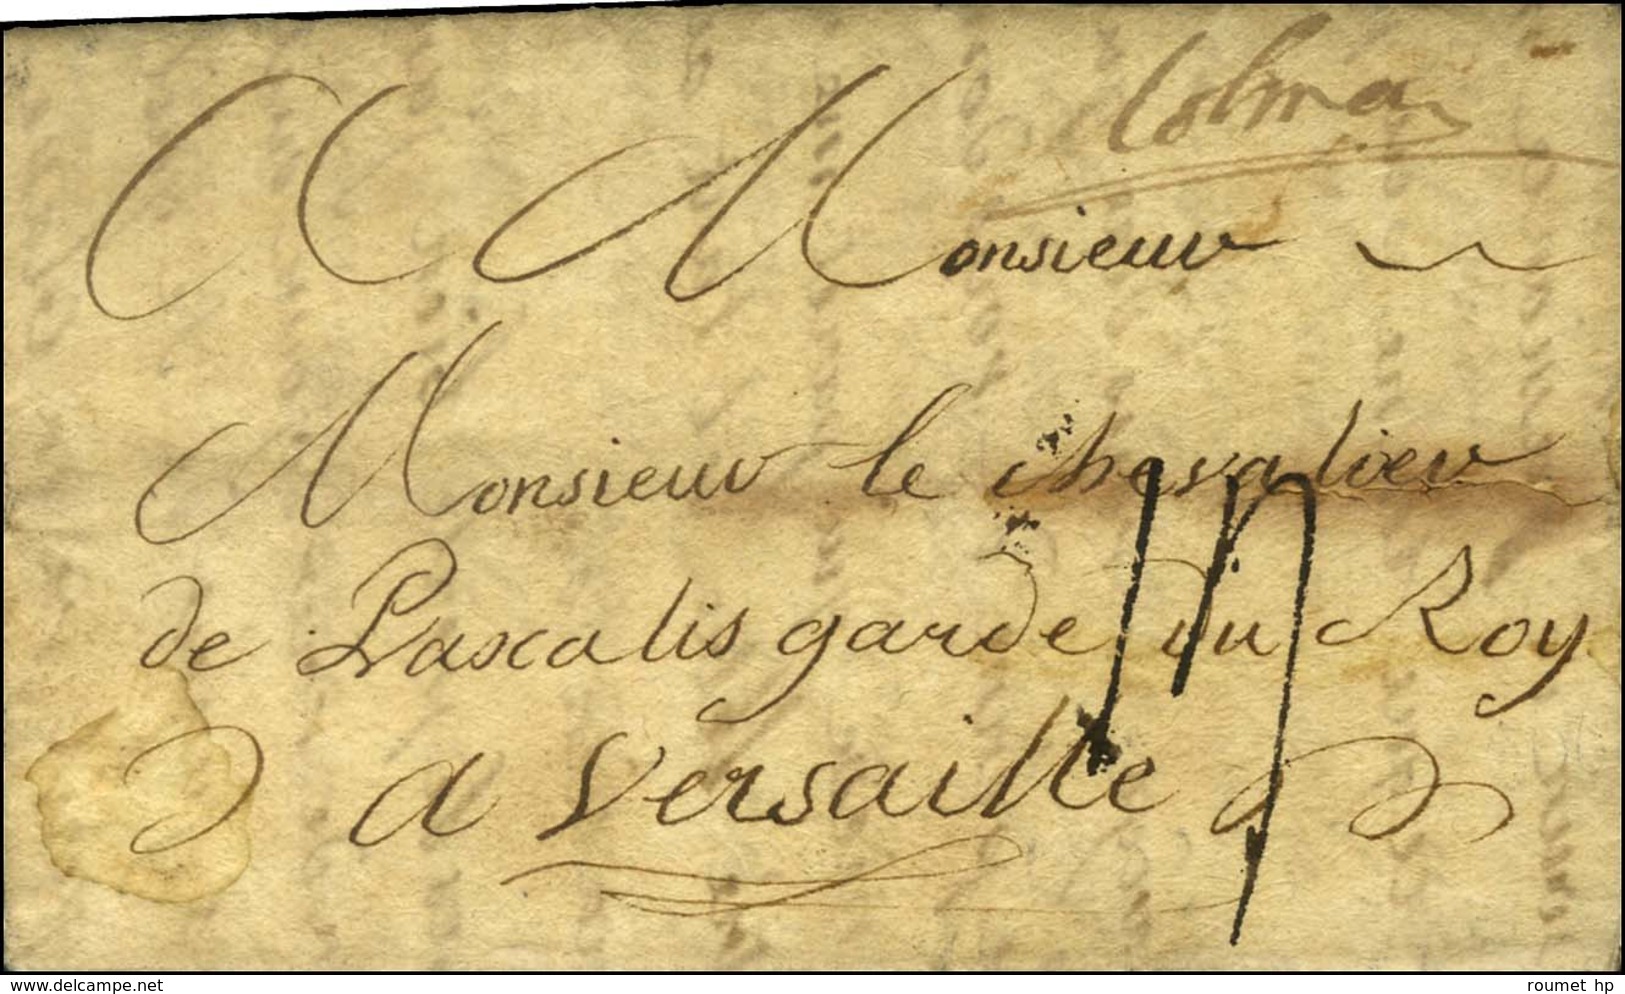 Colmar
A Monsieur
Monsieur le chevalier
de Pascalis garde du Roy
a Versaille
www.delcampe.net
roumet hp